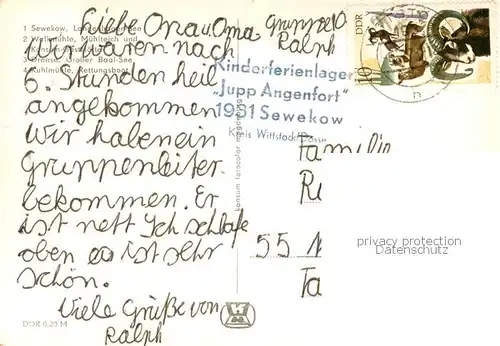 1 Sewekow,
2 Wallmühle, Mühlteich und
3 Dranse, Großer Baal-See
4 Kuhlmühle, Rettungsboot
Liebe Oma u. Opa
wir waren nach
6. Stunden heil
angekommen
Wir haben ein
Gruppenleiter
bekommen. Er
ist nett Ich schlafe
oben es ist sehr
schön.
Viele Grüße von
Ralph
DDR 0,20 M
Gruppe 10.
Ralph
DDR
10
Kinderferienlager
"Jupp Angenfort"
1931 Sewekow
Kreis Wittstock/Dosse
Familie
55
privacy protection
Datenschutz